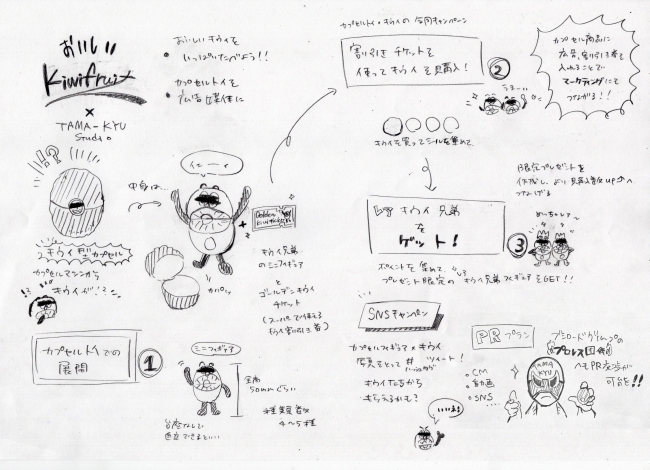 おいしい
Kiwifruit
×
TAMA-KYU
Studio
• おいしいキウイを
いっぱいたべよう!!
• カプセルトイを
広告媒体に
!!?
中身は…
イェーーイ
キウイ型カプセル
カプセルマシンから
キウイが!?
パカッ
+
Golden
キウイ兄弟
のミニフィギュア
と
ゴールデンキウイ
チケット
(スーパーで使える
キウイ割引き券)
カプセルトイでの
展開
①
ミニフィギュア
全高
50mmぐらい
種類数
4〜5種
台座なしで
自立できるといい
カプセルトイ×キウイの合同キャンペーン
割り引きチケットを
使ってキウイを購入!
②
うまーい
カプセル商品に
広告、割り引き券を
入れることで
マーケティングにも
つながる!!
キウイを買ってシールを集めて
キウイ兄弟
を
ゲット!
③
限定プレゼントを
用意し、より購入意欲upへ
つなげる
めっちゃレアー
ポイントを集めて
プレゼント限定のキウイ兄弟フィギュアをGET!!
SNSキャンペーン
カプセルフィギュア×キウイ
写真をとって#ツイート!
ハッシュタグ
キウイたちから
もらえるかも?
いいね!
PRプラン
• CM
• 動画
• SNS…
ブシロードグループの
プロレス団体
へもPR交渉が
可能!!
TAMA
KYU